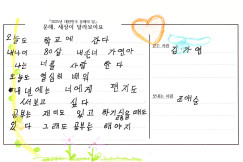 "2023년 대한민국 문해의 달"
문해, 세상이 달라보여요
오늘도 학교에 간다
내나이 80살 내손녀 가연아
나는 너를 사랑 한다
오늘도 열심히 배워
내년에는 너에게 편지도
써보고 싶다
공부는 재미도 있고 하기싫을때도
있다 그래도 공부는 해야지
받는 사람
김가연
보내는 사람
조애숙